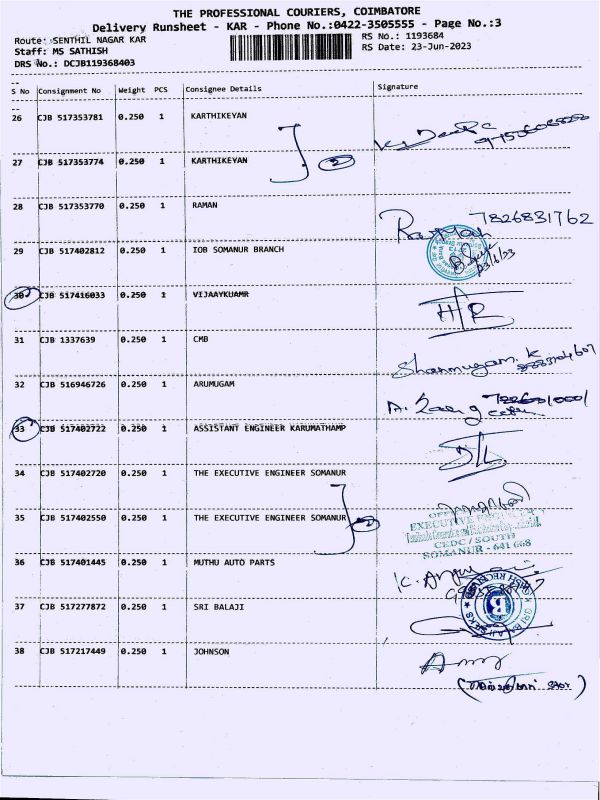 THE PROFESSIONAL COURIERS, COIMBATORE
Delivery Runsheet - KAR - Phone No.:0422-3505555 - Page No.:3
Route: SENTHIL NAGAR KAR RS No.: 1193684
Staff: MS SATHISH RS Date: 23-Jun-2023
DRS No.: DCJB119368403
S No Consignment No Weight PCS Consignee Details Signature
26 CJB 517353781 0.250 1 KARTHIKEYAN
27 CJB 517353774 0.250 1 KARTHIKEYAN 2
28 CJB 517353770 0.250 1 RAMAN Raman 7826831762
29 CJB 517402812 0.250 1 IOB SOMANUR BRANCH 23/6/23
30 CJB 517416033 0.250 1 VIJAAYKUAMR H/R
31 CJB 1337639 0.250 1 CMB Shanmugam. K
32 CJB 516946726 0.250 1 ARUMUGAM
33 CJB 517402722 0.250 1 ASSISTANT ENGINEER KARUMATHAMP D/L
34 CJB 517402720 0.250 1 THE EXECUTIVE ENGINEER SOMANUR
35 CJB 517402550 0.250 1 THE EXECUTIVE ENGINEER SOMANUR 2
EXECUTIVE
CEDC / SOUTH
SOMANUR - 641 668
36 CJB 517401445 0.250 1 MUTHU AUTO PARTS
37 CJB 517277872 0.250 1 SRI BALAJI
38 CJB 517217449 0.250 1 JOHNSON